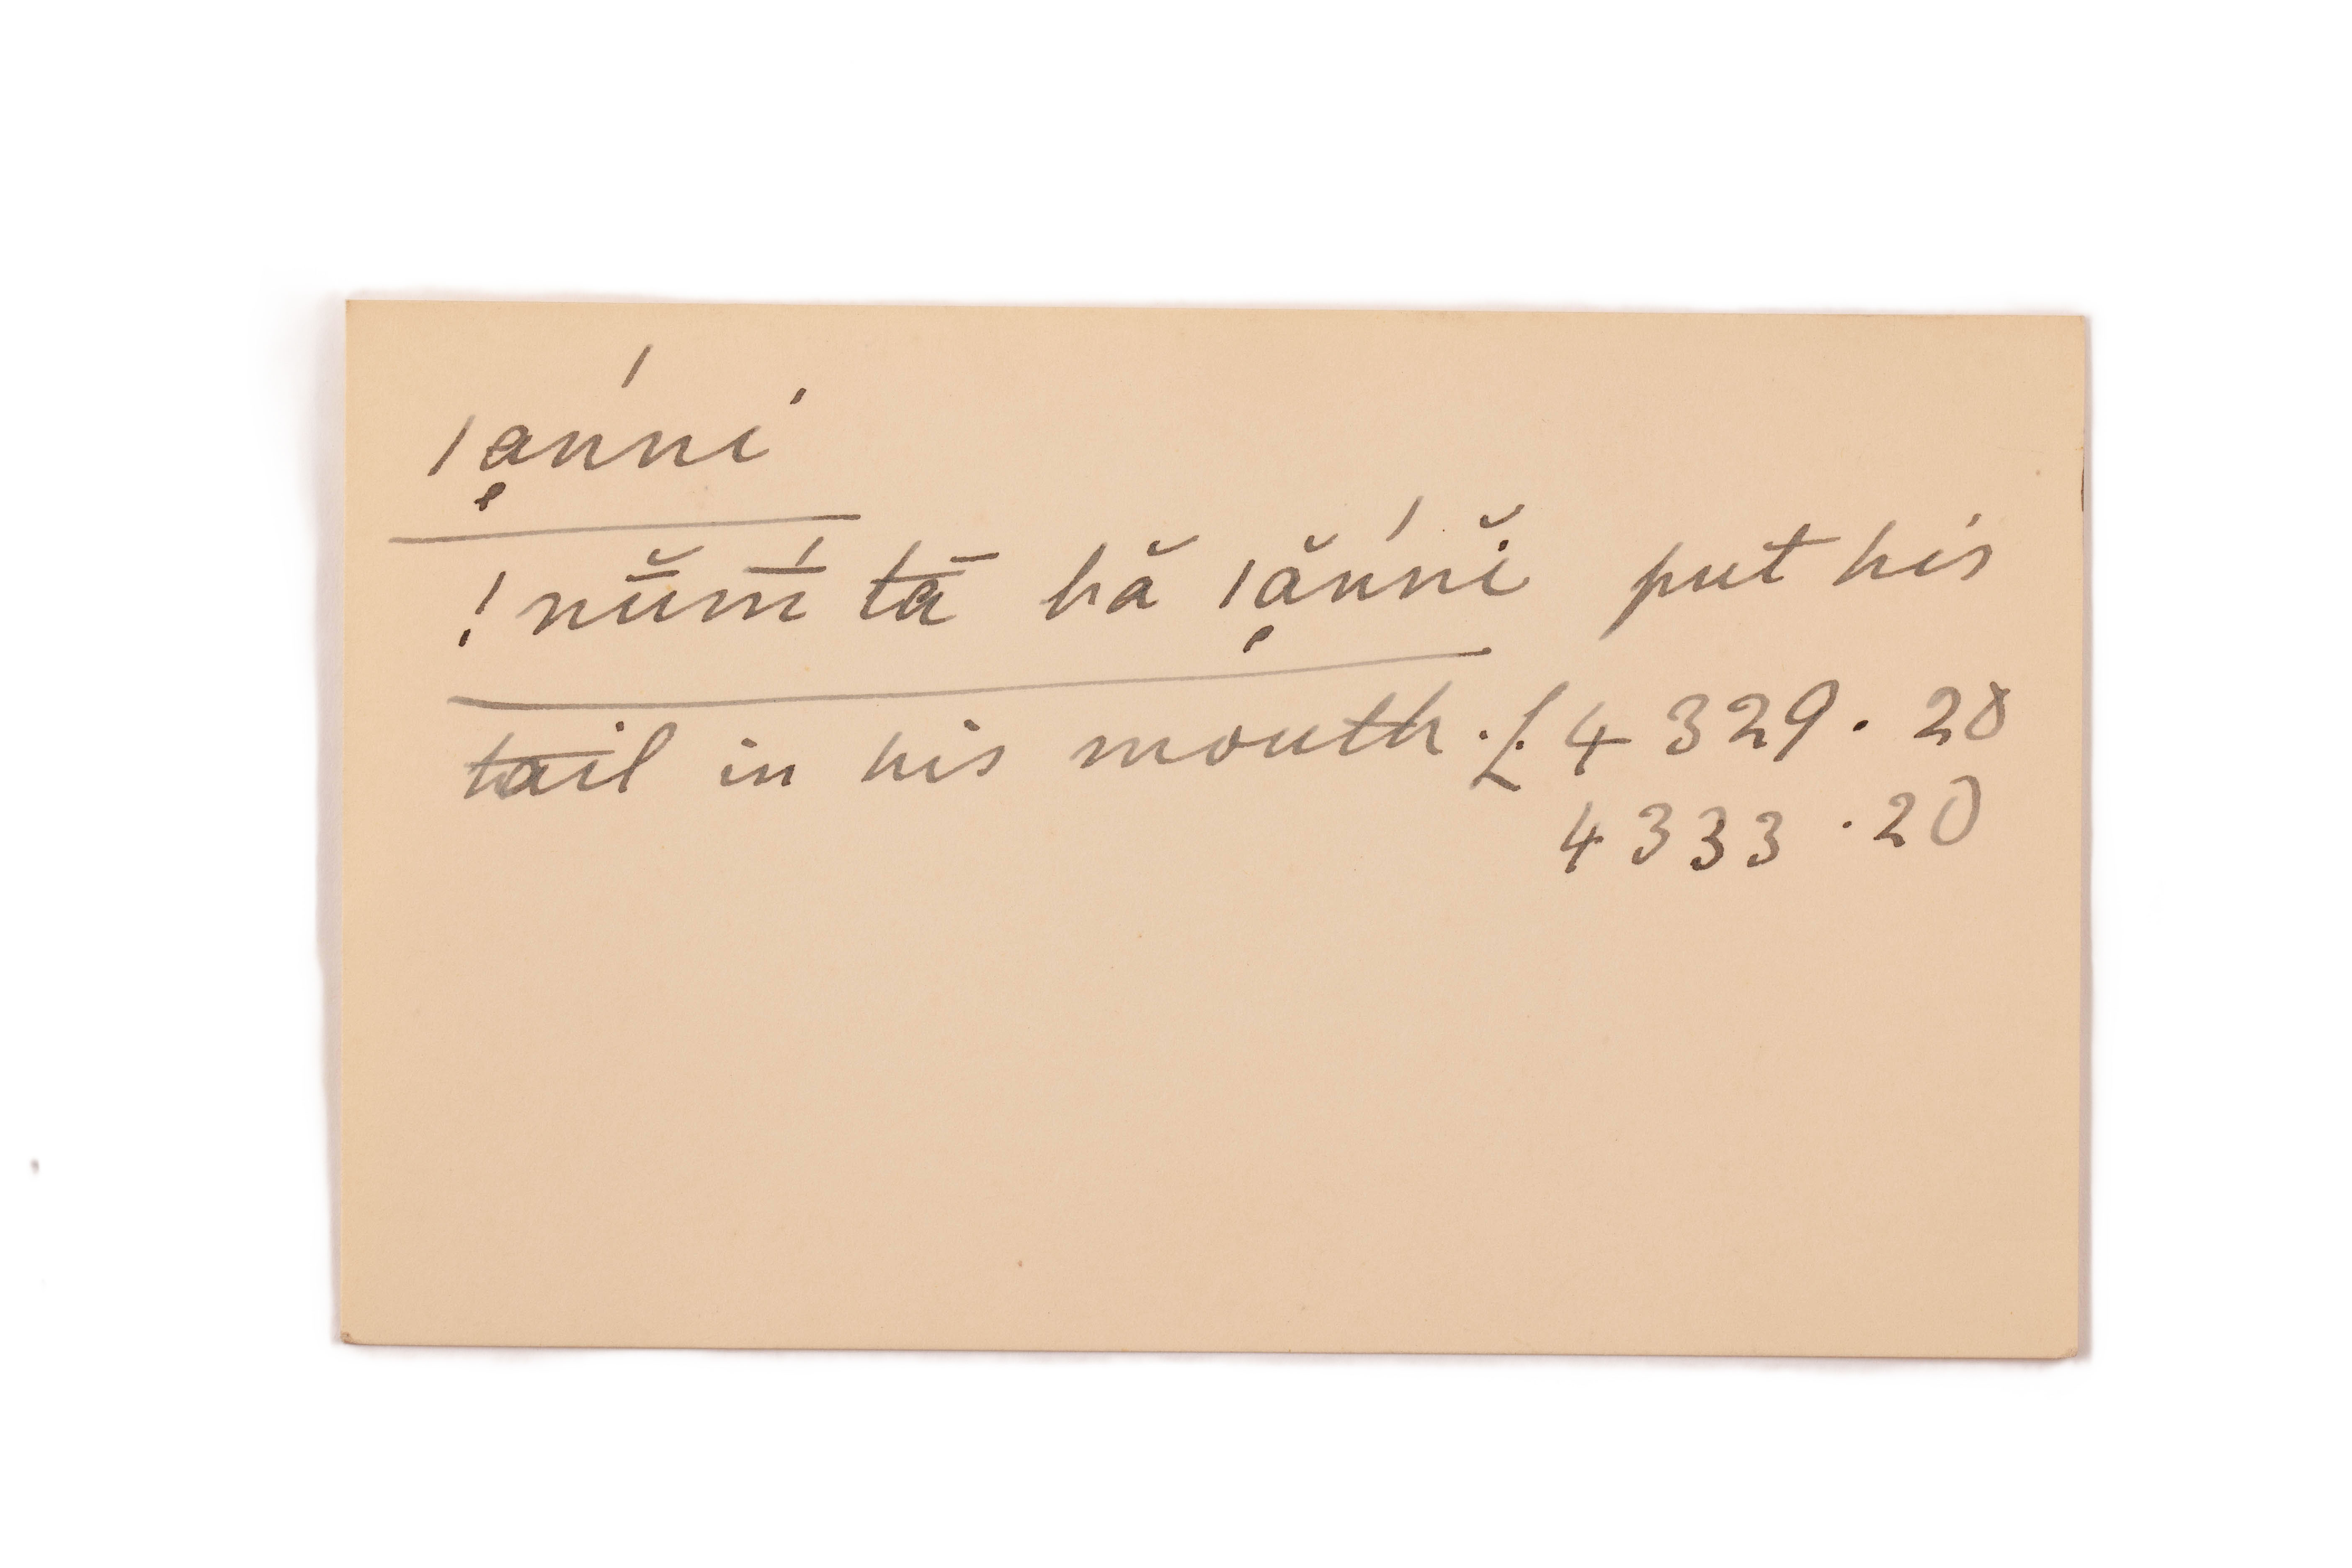 ǀạ́nni
!nŭ̄m̄́ tā hă ǀặ́nnĭ put his
tail in his mouth. £4329.20
4333.20